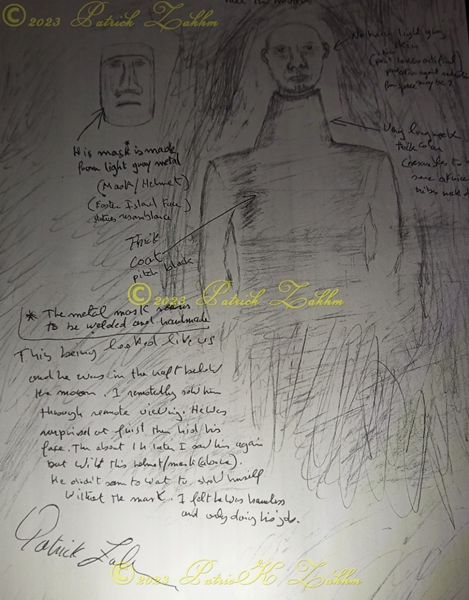 © 2023 Patrick Zakhm
No hair, light gray
skin
for space maybe?
Very long neck
thick collar
His mask is made
from light gray metal
(Mask/Helmet)
(Easter Island Face
statues resemblance)
Thick
coat
pitch black
© 2023 Patrick Zakhm
* The metal mask seems
to be welded and handmade
This being looked like us
and he was in the craft below
the moon. I remotely saw him
through remote viewing. He was
surprised at first then hid his
face. Then about 1h later I saw him again
but with this helmet/mask (above).
He didn't seem to want to show himself
without the mask. I felt he was harmless
and only doing his job.
Patrick
© 2023 Patrick Zakhm